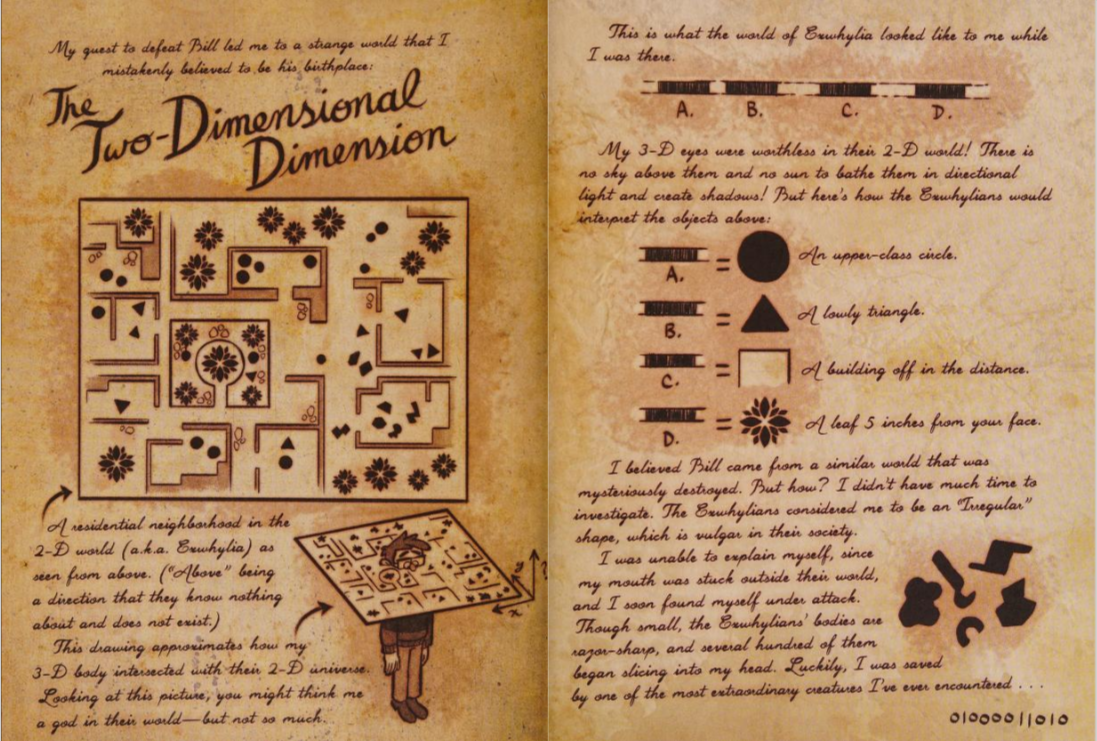 My quest to defeat Bill led me to a strange world that I
mistakenly believed to be his birthplace:
The
Two-Dimensional
Dimension
A residential neighborhood in the
2-D world (a.k.a. Exwhylia) as
seen from above. ("Above" being
a direction that they know nothing
about and does not exist.)
This drawing approximates how my
3-D body intersected with their 2-D universe.
Looking at this picture, you might think me
a god in their world—but not so much.
y
x
?
This is what the world of Exwhylia looked like to me while
I was there.
A. B. C. D.
My 3-D eyes were worthless in their 2-D world! There is
no sky above them and no sun to bathe them in directional
light and create shadows! But here's how the Exwhylians would
interpret the objects above:
A. = An upper-class circle.
B. = A lowly triangle.
C. = A building off in the distance.
D. = A leaf 5 inches from your face.
I believed Bill came from a similar world that was
mysteriously destroyed. But how? I didn't have much time to
investigate. The Exwhylians considered me to be an "Irregular"
shape, which is vulgar in their society.
I was unable to explain myself, since
my mouth was stuck outside their world,
and I soon found myself under attack.
Though small, the Exwhylians' bodies are
razor-sharp, and several hundred of them
began slicing into my head. Luckily, I was saved
by one of the most extraordinary creatures I've ever encountered . . .
010000||010